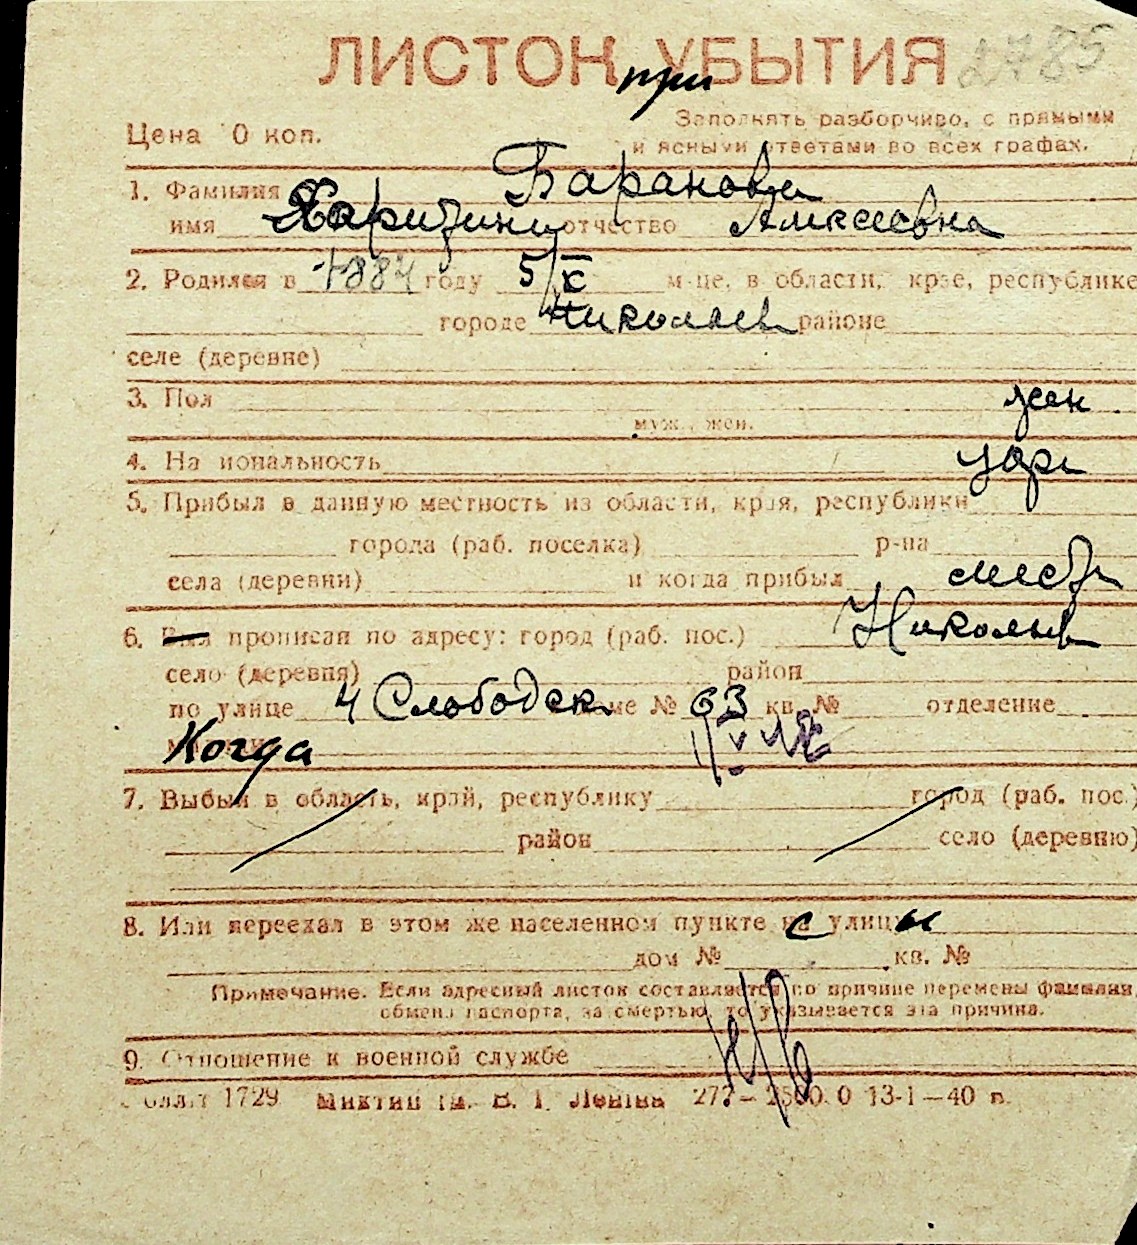 ЛИСТОК УБЫТИЯ 2785
при
Цена 0 коп.
Заполнять разборчиво, с прямыми
и ясными ответами во всех графах.
1. Фамилия Баранова
имя отчество Алексеевна
2. Родился в 1884 году 5/X м-це, в области, крае, республике
городе Николаев районе
селе (деревне)
3. Пол жен
муж., жен.
4. Национальность укр
5. Прибыл в данную местность из области, края, республики
города (раб. поселка) р-на
села (деревни) и когда прибыл мест
6. Был прописан по адресу: город (раб. пос.) Николаев
село (деревня) район
по улице 4 Слободск доме № 63 кв. № отделение
Когда
7. Выбыл в область, край, республику город (раб. пос.)
район село (деревню)
8. Или переехал в этом же населенном пункте с улицы
дом № кв. №
Примечание. Если адресный листок составляется по причине перемены фамилии,
обмена паспорта, за смертью, то указывается эта причина.
9. Отношение к военной службе
н/в
1729 Миктип ім. В. І. Леніна 277—2500.0 13-1—40 в.